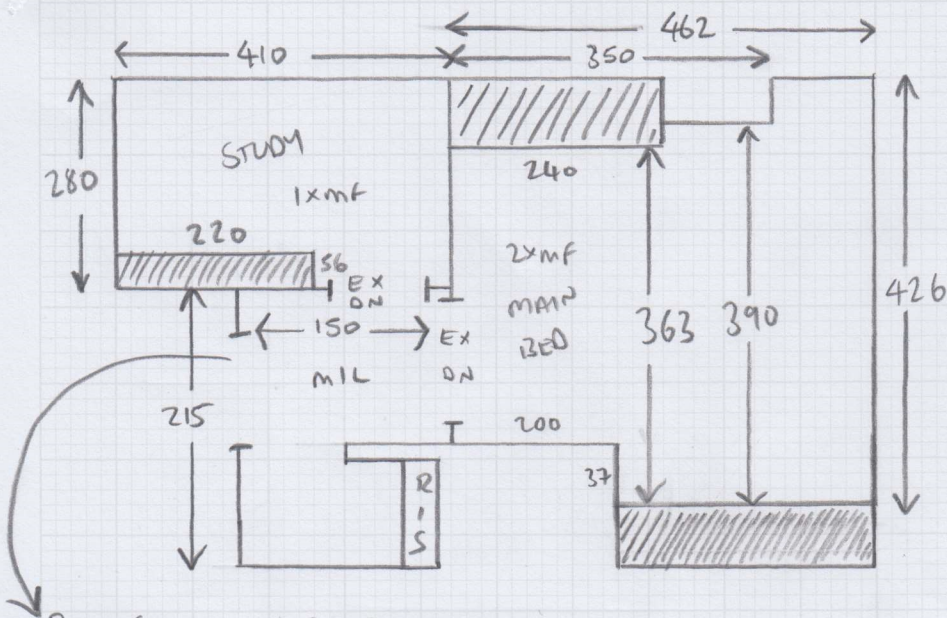 462
410
350
STUDY
280
1xMF
240
220
56
EX
DN
2xMF
MAIN
BED
426
363
390
150
EX
DN
MIL
215
200
37
R
I
S